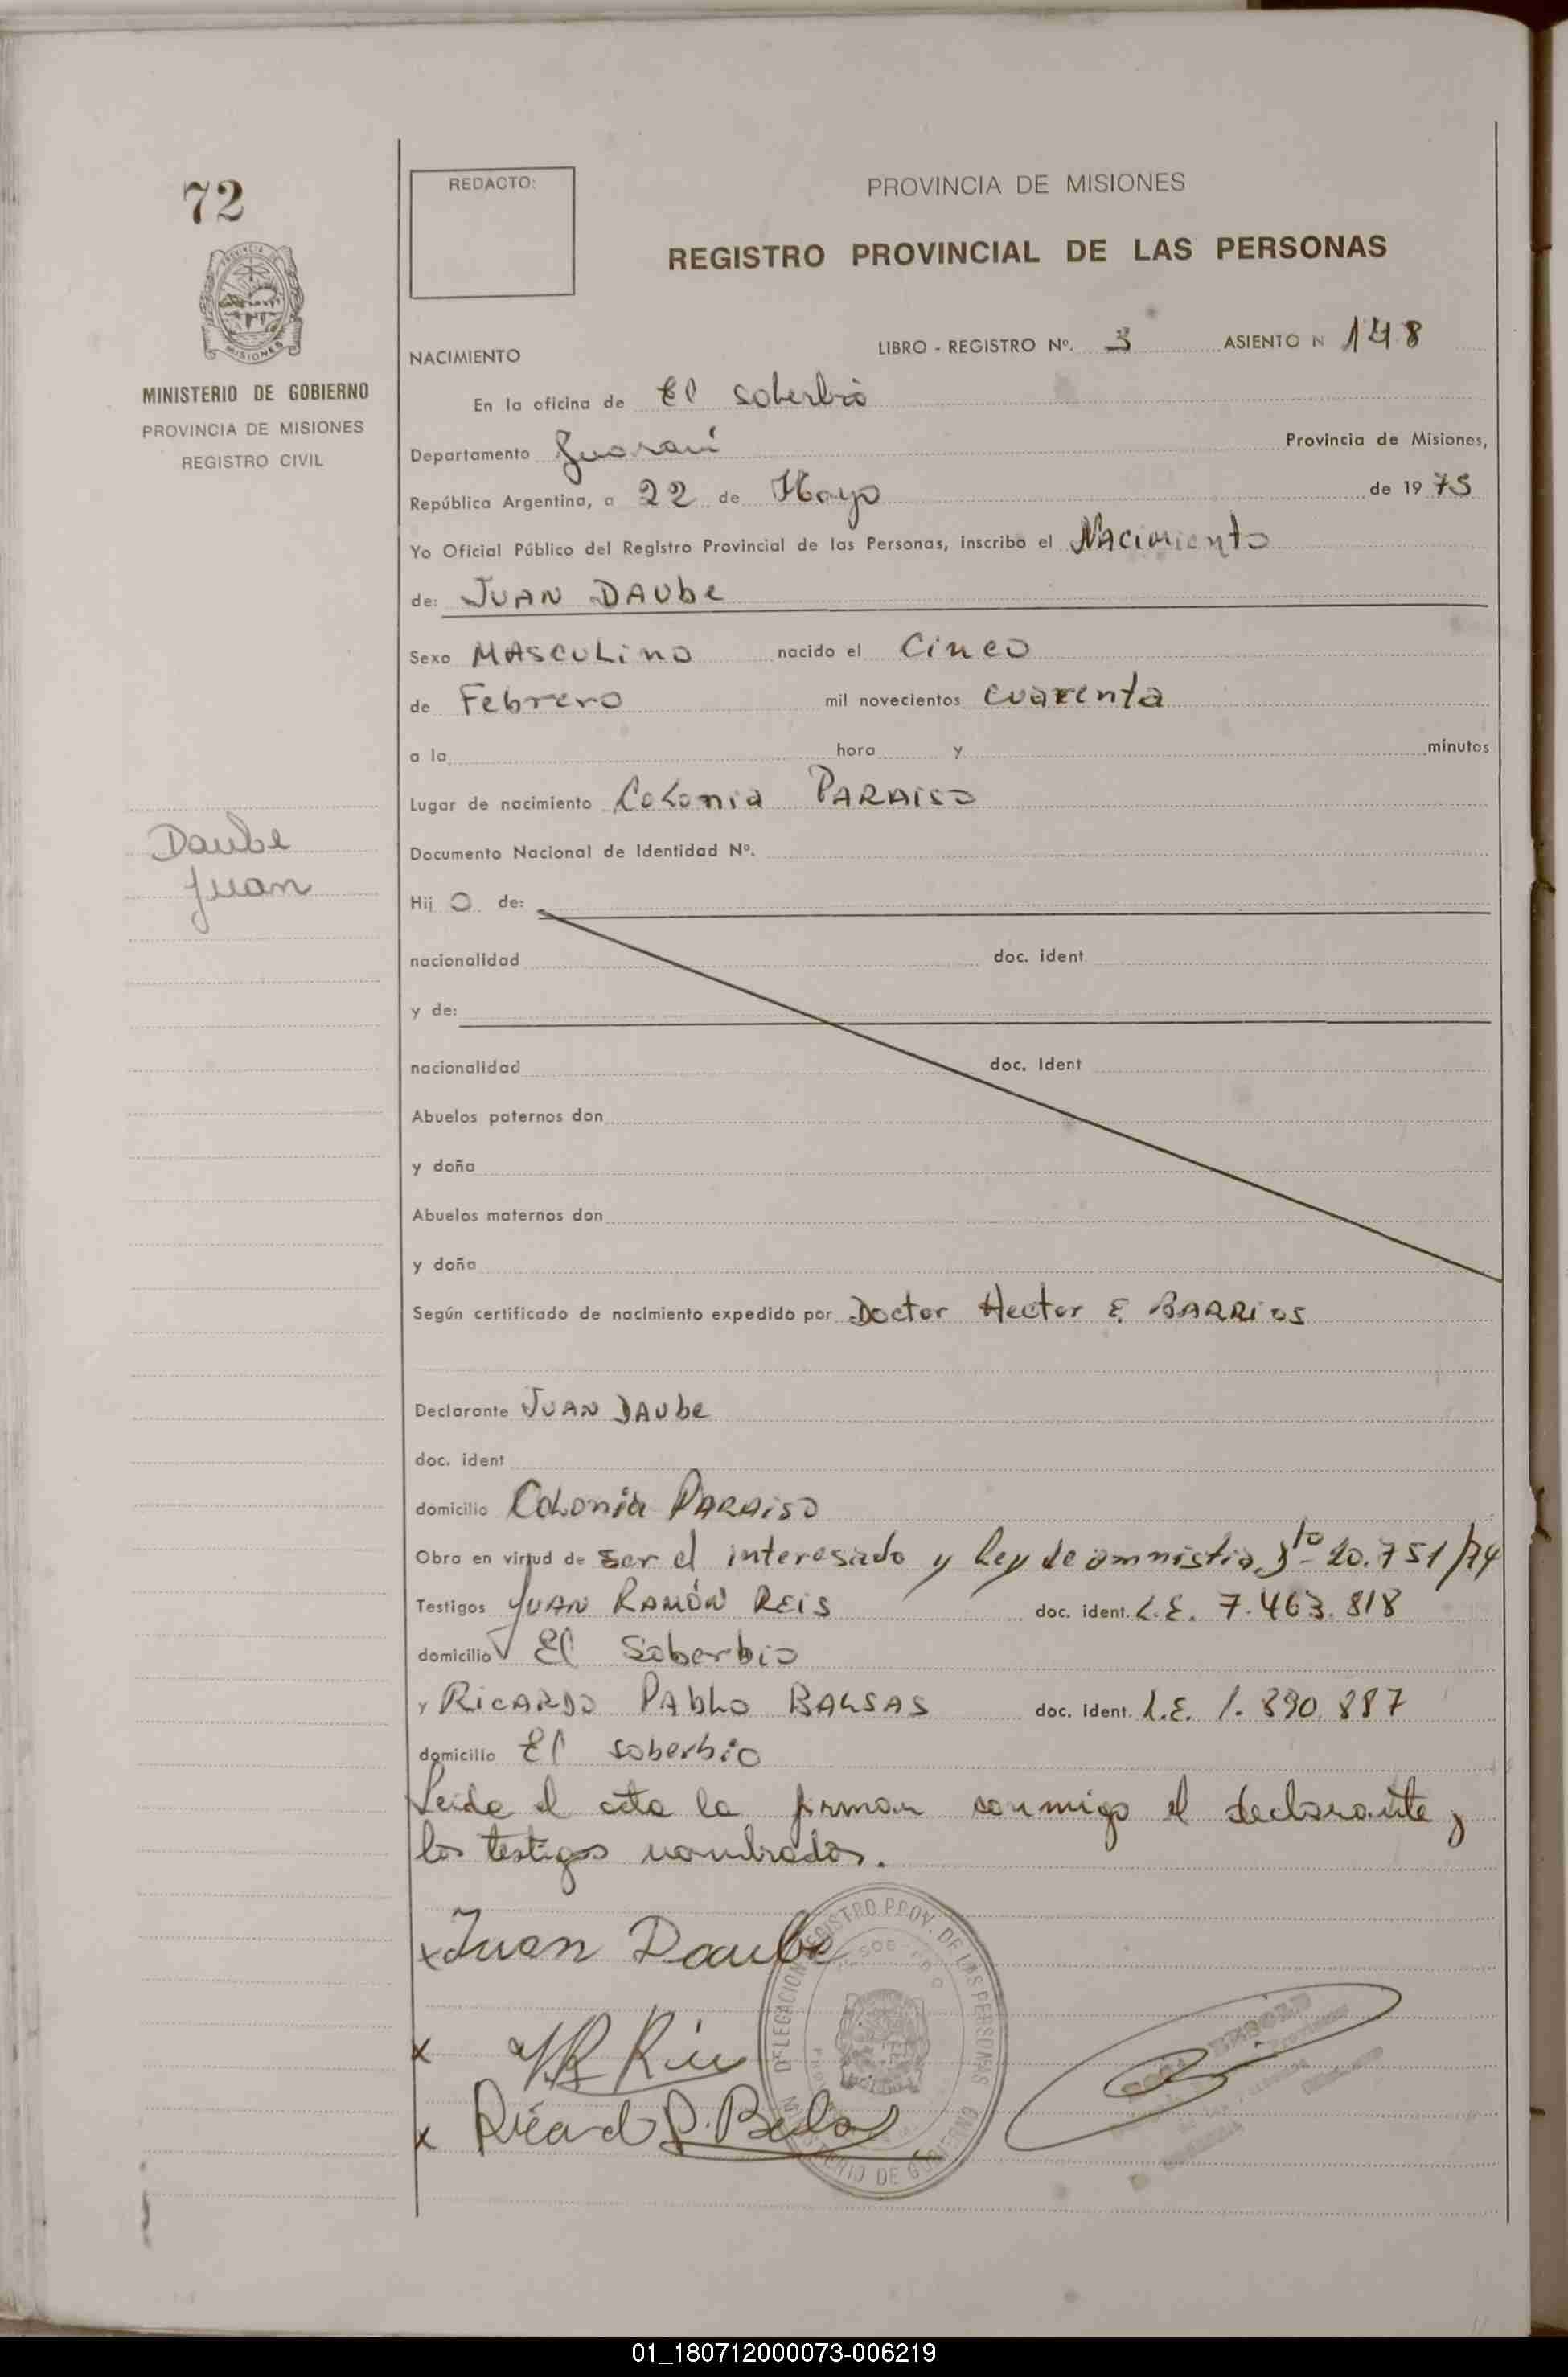 72
REDACTO:
PROVINCIA DE MISIONES
REGISTRO PROVINCIAL DE LAS PERSONAS
MISIONES
MINISTERIO DE GOBIERNO
PROVINCIA DE MISIONES
REGISTRO CIVIL
NACIMIENTO LIBRO - REGISTRO Nº. 3 ASIENTO N 148
En la oficina de El Soberbio
Departamento Guaraní Provincia de Misiones,
República Argentina, a 22 de Mayo de 1975
Yo Oficial Público del Registro Provincial de las Personas, inscribo el Nacimiento
de: JUAN DAUbe
Sexo MASCULiNO nacido el Cinco
de Febrero mil novecientos cuarenta
a la hora y minutos
Lugar de nacimiento Colonia PARAISO
Daube
Juan
Documento Nacional de Identidad Nº.
Hij O de:
nacionalidad doc. ident
y de:
nacionalidad doc. ident
Abuelos paternos don
y doña
Abuelos maternos don
y doña
Según certificado de nacimiento expedido por Doctor Hector E. BARRiOS
Declarante JUAN DAUbe
doc. ident
domicilio Colonia PARAiSO
Obra en virtud de ser el interesado y Ley de amnistia 20.751/74
Testigos JUAN RAMÓN REiS doc. ident. L.E. 7.463.818
domicilio El Soberbio
y RiCARDO PAbLO BALSAS doc. ident. L.E. 1.890.887
domicilio El soberbio
Leida el acta la firman conmigo el declarante y
los testigos nombrados.
x Juan Daube
x
x Ricardo P. Balsas
DELEGACION REGISTRO PROV. DE LAS PERSONAS
MINISTERIO DE GOBIERNO
01_180712000073-006219